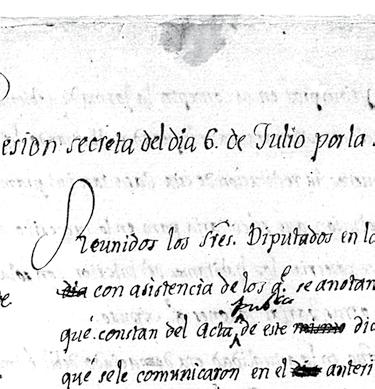 esion secreta del dia 6. de Julio por la
Reunidos los Sres. Diputados en la
dia con asistencia de los qe. se anotan
publica
que constan del Acta, de este mismo dia
que se le comunicaron en el dia anteri